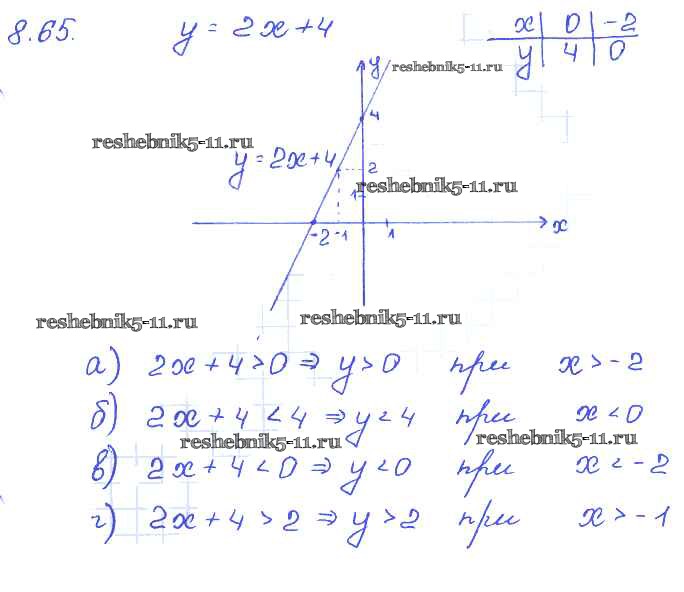 8.65. y = 2x + 4
x 0 -2
y 4 0
y reshebnik5-11.ru
4
reshebnik5-11.ru
y = 2x+4
2
reshebnik5-11.ru
1
-2 -1 1 x
reshebnik5-11.ru reshebnik5-11.ru
а) 2x + 4 > 0 ⇒ y > 0 при x > -2
б) 2x + 4 < 4 ⇒ y < 4 при x < 0
reshebnik5-11.ru reshebnik5-11.ru
в) 2x + 4 < 0 ⇒ y < 0 при x < -2
г) 2x + 4 > 2 ⇒ y > 2 при x > -1